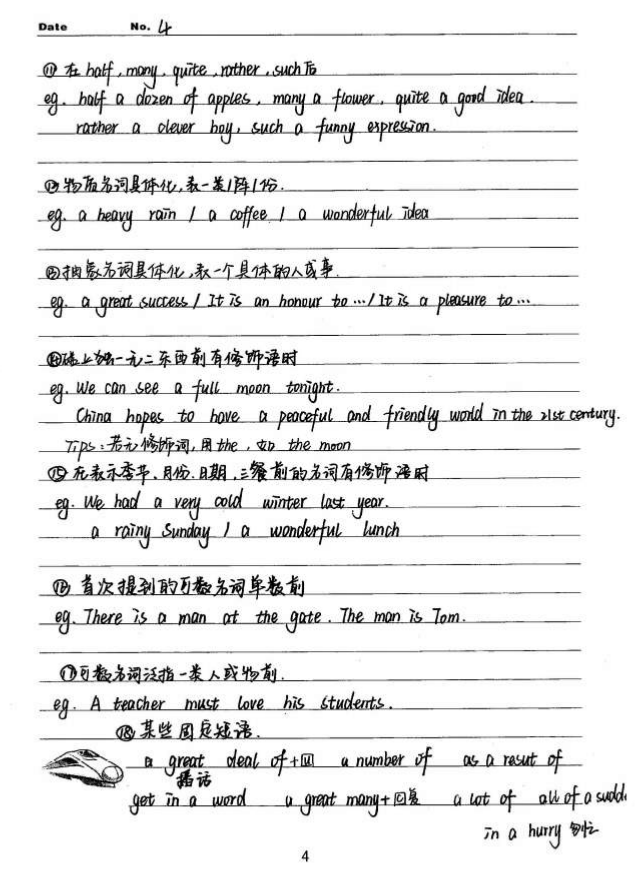 Date No. 4
⑪ 在 half, many, quite, rather, such 后
eg. half a dozen of apples, many a flower, quite a good idea.
rather a clever boy, such a funny expression.
⑫物质名词具体化,表一类/阵/份.
eg. a heavy rain / a coffee / a wonderful idea
⑬抽象名词具体化,表一个具体的人或事.
eg. a great success / It is an honour to … / It is a pleasure to …
⑭世上独一无二东西前有修饰语时
eg. We can see a full moon tonight.
China hopes to have a peaceful and friendly world in the 21st century.
Tips:若无修饰词,用the,如 the moon
⑮在表示季节、月份、日期,三餐前的名词有修饰语时
eg. We had a very cold winter last year.
a rainy Sunday / a wonderful lunch
⑯ 首次提到的可数名词单数前
eg. There is a man at the gate. The man is Tom.
⑰可数名词泛指一类人或物前.
eg. A teacher must love his students.
⑱某些固定短语.
a great deal of+ a number of as a resut of
插话
get in a word a great many+ a lot of all of a sudd
in a hurry 匆忙
4